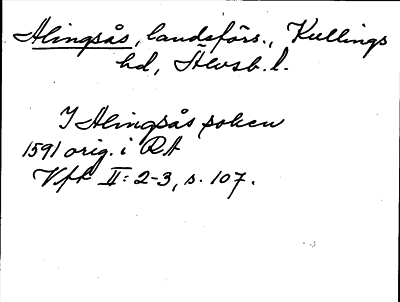 Alingsås, landsförs., Kullings
hd, Älvsb. l.
I Alingsås socken
1591 orig. i RA
Vfk II: 2-3, s. 107.